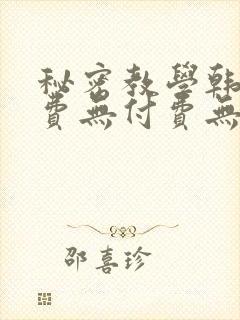 秘密教學韩
費無付費無
邵喜珍